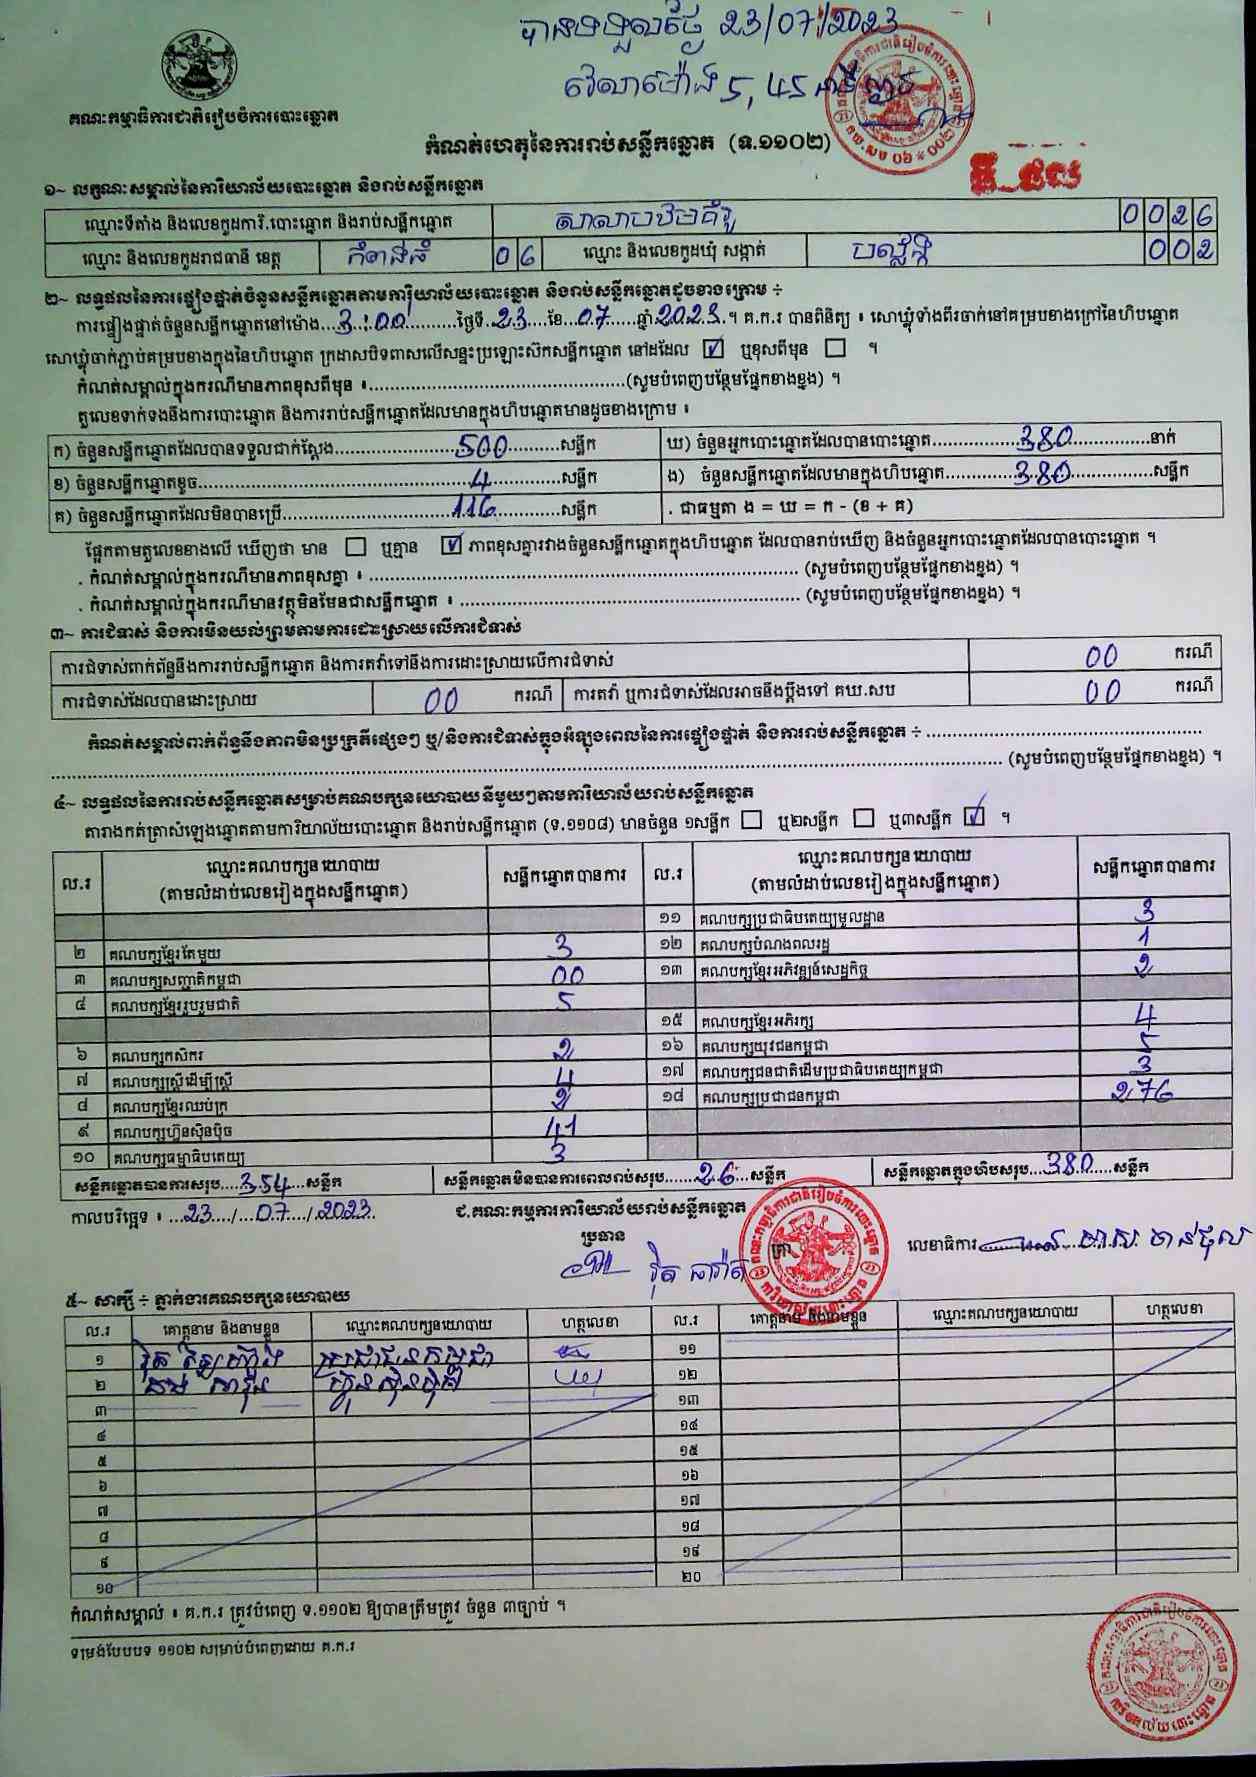 បានទទួលថ្ងៃ 23/07/2023
វេលាម៉ោង 5,45 នាទី ល្ងាច
គណៈកម្មាធិការជាតិរៀបចំការបោះឆ្នោត
កំណត់ហេតុនៃការរាប់សន្លឹកឆ្នោត (ទ.១១០២)
១~ លក្ខណៈសម្គាល់នៃការិយាល័យបោះឆ្នោត និងរាប់សន្លឹកឆ្នោត
ឈ្មោះទីតាំង និងលេខកូដការិ.បោះឆ្នោត និងរាប់សន្លឹកឆ្នោត សាលាបឋមគំរូ 0026
ឈ្មោះ និងលេខកូដរាជធានី ខេត្ត កំពង់ធំ 06 ឈ្មោះ និងលេខកូដឃុំ សង្កាត់ បល្ល័ង្ក 002
២~ លទ្ធផលនៃការផ្ទៀងផ្ទាត់ចំនួនសន្លឹកឆ្នោតតាមការិយាល័យបោះឆ្នោត និងរាប់សន្លឹកឆ្នោតដូចខាងក្រោម ÷
ការផ្ទៀងផ្ទាត់ចំនួនសន្លឹកឆ្នោតនៅម៉ោង...3:00...ថ្ងៃទី.23...ខែ.07...ឆ្នាំ.2023.។ គ.ក.រ បានពិនិត្យ ៖ សោឃ្លុំទាំងពីរចាក់នៅគម្របខាងក្រៅនៃហិបឆ្នោត
សោឃ្លុំចាក់ភ្ជាប់គម្របខាងក្នុងនៃហិបឆ្នោត ក្រដាសបិទពាសលើសន្ទះប្រឡោះស៊កសន្លឹកឆ្នោត នៅដដែល ☑ ឬខុសពីមុន ☐ ។
កំណត់សម្គាល់ក្នុងករណីមានភាពខុសពីមុន ៖...(សូមបំពេញបន្ថែមផ្នែកខាងខ្នង) ។
តួលេខទាក់ទងនឹងការបោះឆ្នោត និងការរាប់សន្លឹកឆ្នោតដែលមានក្នុងហិបឆ្នោតមានដូចខាងក្រោម ៖
ក) ចំនួនសន្លឹកឆ្នោតដែលបានទទួលជាក់ស្តែង...500...សន្លឹក ឃ) ចំនួនអ្នកបោះឆ្នោតដែលបានបោះឆ្នោត...380...នាក់
ខ) ចំនួនសន្លឹកឆ្នោតខូច...4...សន្លឹក ង) ចំនួនសន្លឹកឆ្នោតដែលមានក្នុងហិបឆ្នោត...380...សន្លឹក
គ) ចំនួនសន្លឹកឆ្នោតដែលមិនបានប្រើ...116...សន្លឹក . ជាធម្មតា ង = ឃ = ក - (ខ + គ)
ផ្អែកតាមតួលេខខាងលើ ឃើញថា មាន ☐ ឬគ្មាន ☑ ភាពខុសគ្នារវាងចំនួនសន្លឹកឆ្នោតក្នុងហិបឆ្នោត ដែលបានរាប់ឃើញ និងចំនួនអ្នកបោះឆ្នោតដែលបានបោះឆ្នោត ។
. កំណត់សម្គាល់ក្នុងករណីមានភាពខុសគ្នា ៖ ... (សូមបំពេញបន្ថែមផ្នែកខាងខ្នង) ។
. កំណត់សម្គាល់ក្នុងករណីមានវត្ថុមិនមែនជាសន្លឹកឆ្នោត ៖ ... (សូមបំពេញបន្ថែមផ្នែកខាងខ្នង) ។
៣~ ការជំទាស់ និងការមិនយល់ព្រមតាមការដោះស្រាយលើការជំទាស់
ការជំទាស់ពាក់ព័ន្ធនឹងការរាប់សន្លឹកឆ្នោត និងការតវ៉ាទៅនឹងការដោះស្រាយលើការជំទាស់ 00 ករណី
ការជំទាស់ដែលបានដោះស្រាយ 00 ករណី ការតវ៉ា ឬការជំទាស់ដែលអាចនឹងប្តឹងទៅ គឃ.សប 00 ករណី
កំណត់សម្គាល់ពាក់ព័ន្ធនឹងភាពមិនប្រក្រតីផ្សេងៗ ឬ/និងការជំទាស់ក្នុងអំឡុងពេលនៃការផ្ទៀងផ្ទាត់ និងការរាប់សន្លឹកឆ្នោត ÷ ...
... (សូមបំពេញបន្ថែមផ្នែកខាងខ្នង) ។
៤~ លទ្ធផលនៃការរាប់សន្លឹកឆ្នោតសម្រាប់គណបក្សនយោបាយនីមួយៗតាមការិយាល័យរាប់សន្លឹកឆ្នោត
តារាងកត់ត្រាសំឡេងឆ្នោតតាមការិយាល័យបោះឆ្នោត និងរាប់សន្លឹកឆ្នោត (ទ.១១០៨) មានចំនួន ១សន្លឹក ☐ ឬ២សន្លឹក ☐ ឬ៣សន្លឹក ☑ ។
ល.រ ឈ្មោះគណបក្សនយោបាយ (តាមលំដាប់លេខរៀងក្នុងសន្លឹកឆ្នោត) សន្លឹកឆ្នោតបានការ ល.រ ឈ្មោះគណបក្សនយោបាយ (តាមលំដាប់លេខរៀងក្នុងសន្លឹកឆ្នោត) សន្លឹកឆ្នោតបានការ
១១ គណបក្សប្រជាធិបតេយ្យមូលដ្ឋាន 3
២ គណបក្សខ្មែរតែមួយ 3 ១២ គណបក្សបំណងពលរដ្ឋ 1
៣ គណបក្សសញ្ជាតិកម្ពុជា 00 ១៣ គណបក្សខ្មែរអភិវឌ្ឍន៍សេដ្ឋកិច្ច 2
៤ គណបក្សខ្មែររួបរួមជាតិ 5
១៥ គណបក្សខ្មែរអភិរក្ស 4
៦ គណបក្សកសិករ 2 ១៦ គណបក្សយុវជនកម្ពុជា 5
៧ គណបក្សស្ត្រីដើម្បីស្ត្រី 4 ១៧ គណបក្សជនជាតិដើមប្រជាធិបតេយ្យកម្ពុជា 3
៨ គណបក្សខ្មែរឈប់ក្រ 2 ១៨ គណបក្សប្រជាជនកម្ពុជា 276
៩ គណបក្សហ៊្វុនស៊ិនប៉ិច 41
១០ គណបក្សធម្មាធិបតេយ្យ 3
សន្លឹកឆ្នោតបានការសរុប...354...សន្លឹក សន្លឹកឆ្នោតមិនបានការពេលរាប់សរុប...26...សន្លឹក សន្លឹកឆ្នោតក្នុងហិបសរុប...380...សន្លឹក
កាលបរិច្ឆេទ ៖ ...23.../...07.../.2023. ជ.គណៈកម្មការការិយាល័យរាប់សន្លឹកឆ្នោត
ប្រធាន ត្រា លេខាធិការ
៥~ សាក្សី ÷ ភ្នាក់ងារគណបក្សនយោបាយ
ល.រ គោត្តនាម និងនាមខ្លួន ឈ្មោះគណបក្សនយោបាយ ហត្ថលេខា ល.រ គោត្តនាម និងនាមខ្លួន ឈ្មោះគណបក្សនយោបាយ ហត្ថលេខា
១ ប្រជាជនកម្ពុជា ១១
២ ហ៊្វុនស៊ិនប៉ិច ១២
៣ ១៣
៤ ១៤
៥ ១៥
៦ ១៦
៧ ១៧
៨ ១៨
៩ ១៩
១០ ២០
កំណត់សម្គាល់ ៖ គ.ក.រ ត្រូវបំពេញ ទ.១១០២ ឱ្យបានត្រឹមត្រូវ ចំនួន ៣ច្បាប់ ។
ទម្រង់បែបបទ ១១០២ សម្រាប់បំពេញដោយ គ.ក.រ